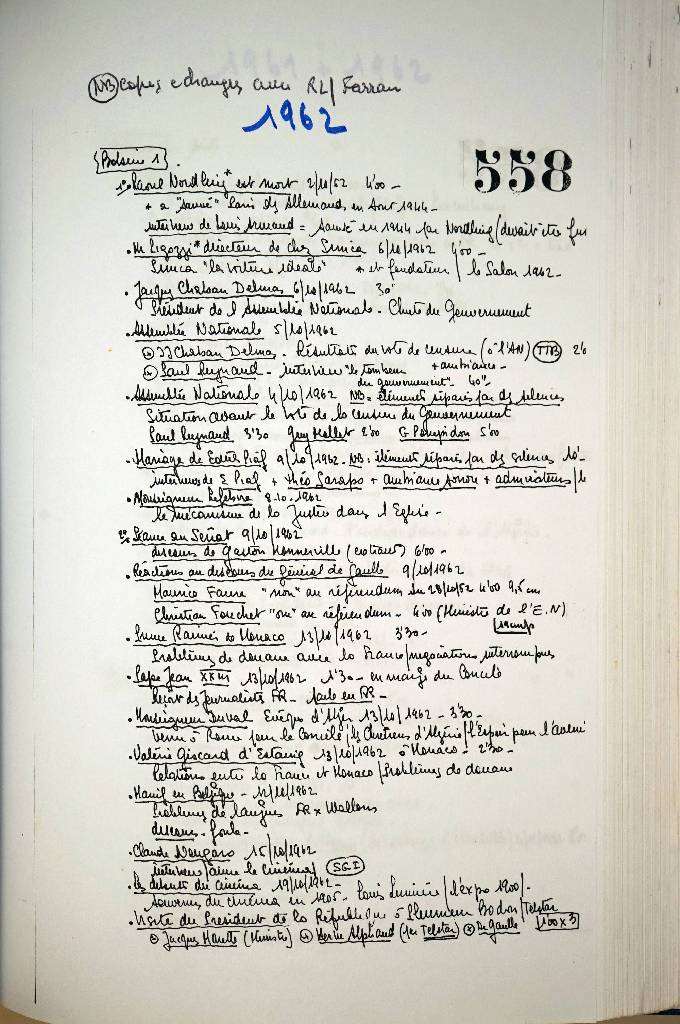 NB copies echanges avec RL/Farran
1962
Bobine 1
558
1° Raoul Nordling* est mort 2/10/62 4'00 -
* a "sauvé" Paris des Allemands en Aout 1944 -
interview de Louis Armand = sauvé en 1944 par Nordling (devait être fus
. Mr Pigozzi* directeur de chez Simca 6/10/1962 4'00 -
Simca "la voiture idéale" * et fondateur / le Salon 1962 -
. Jacques Chaban Delmas 6/10/1962 30"
Président de l'Assemblée Nationale - Chute du Gouvernement
. Assemblée Nationale 5/10/1962
JJ Chaban Delmas - Résultats du vote de censure (à l'AN) TTB 2'0
Paul Reynaud - interview "le tombeur + ambiance -
du gouvernement" - 40" -
. Assemblée Nationale 4/10/1962 NB = éléments séparés par des silences
Situation avant le vote de la censure du Gouvernement
Paul Reynaud 3'30 Guy Mollet 2'00 G Pompidou 5'00
. Mariage de Edith Piaf 9/10/1962 - NB: éléments séparés par des silences 10'-
interviews de E Piaf + Théo Sarapo + ambiance sonore + admirateurs / le
. Monseigneur Lefebvre 8.10.1962
le mécanisme de la Justice dans l'Eglise -
2° Séance au Sénat 9/10/1962
discours de Gaston Monnerville (extraits) 6'00 -
. Réactions au discours du Général de Gaulle 9/10/1962
Maurice Faure "non" au référendum du 28/10/62 4'00 9,5 cm
Christian Fouchet "oui" au référendum - 4'00 (Ministre de l'E.N)
. Prince Rainier de Monaco 13/10/1962 3'30 -
Problèmes de douane avec la France / negociations interrompues
. Pape Jean XXIII 13/10/1962 1'30 - en marge du Concile
Reçoit des Journalistes FR - parle en FR -
. Monseigneur Duval Evêque d'Alger 13/10/1962 - 3'30 -
Venu à Rome pour le Concile / les Chretiens d'Algérie / l'Espoir pour l'avenir
. Valérie Giscard d'Estaing 13/10/1962 à Monaco - 2'30 -
Relations entre la France et Monaco / Problèmes de douane
. Manif en Belgique - 14/10/1962
Problèmes de langues FR x Wallons
discours - foule -
. Claude Nougaro 15/10/1962
interview / aime le cinéma / SGI
. Les debuts du cinéma 19/10/1962 -
Souvenirs du cinéma en 1905 - Louis Lumière / l'expo 1900 / -
. Visite du Président de la République à Pleumeur Bodou / Telstar
Jacques Marette (Ministre) Hervé Alphand (par Telstar) De Gaulle 1'00 x 3